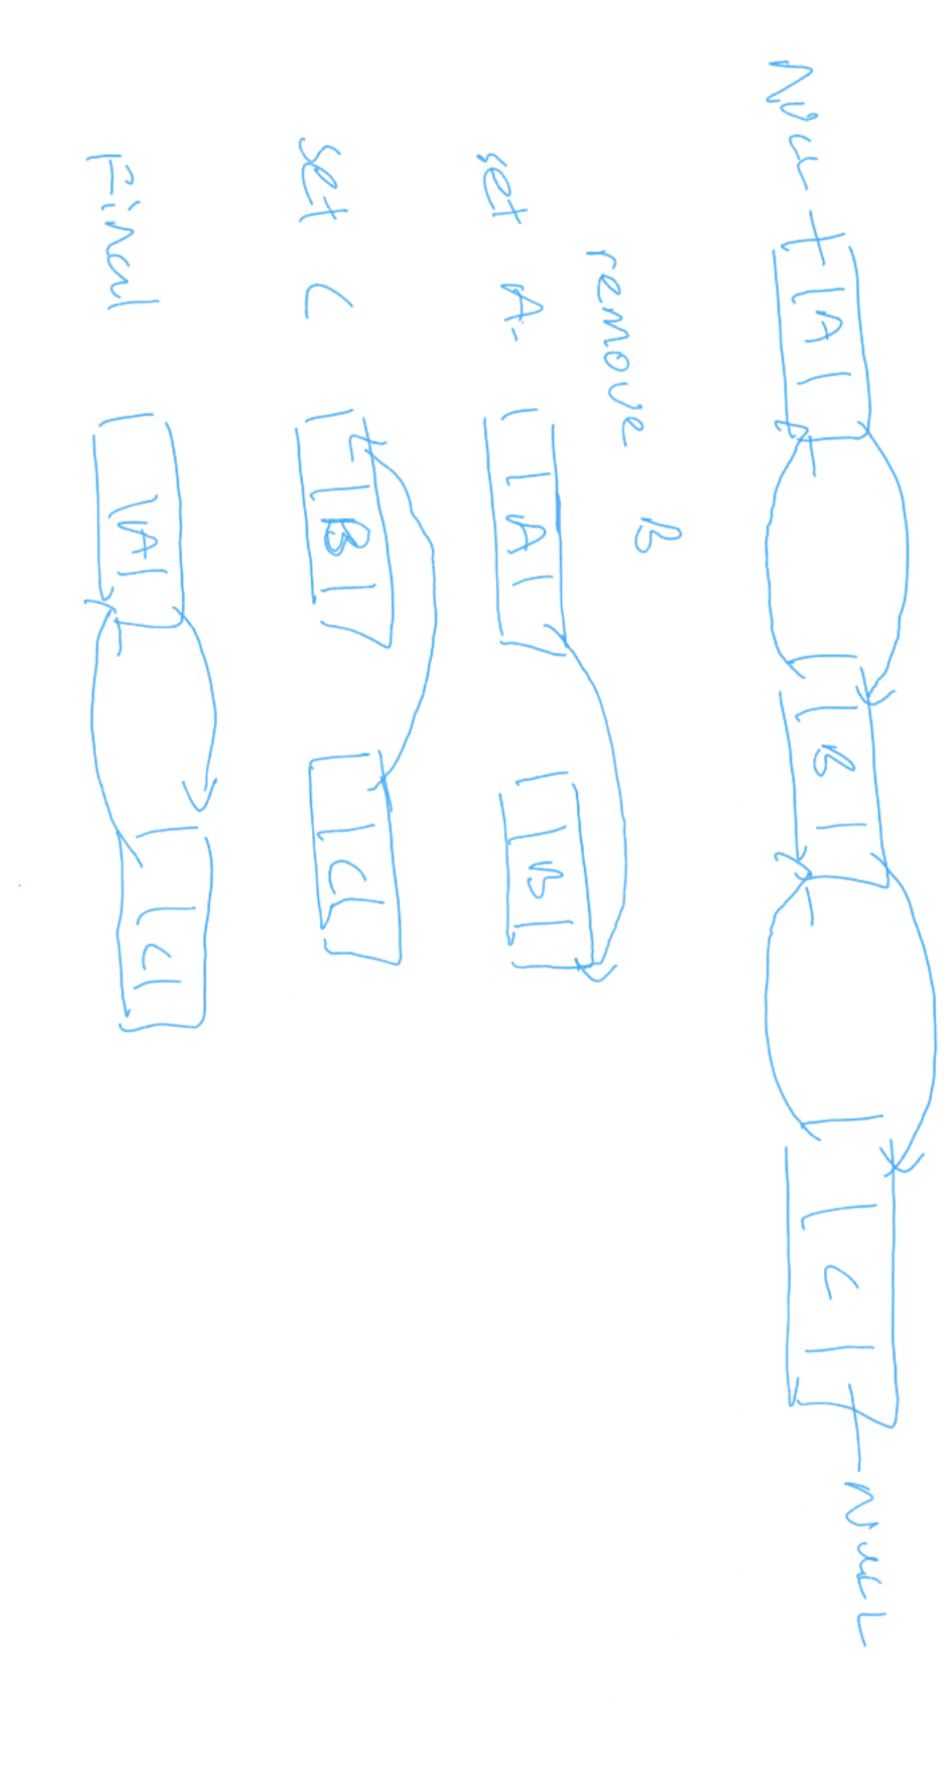 NULL A B C NULL
remove B
set A. A B
set C B C
Final A C